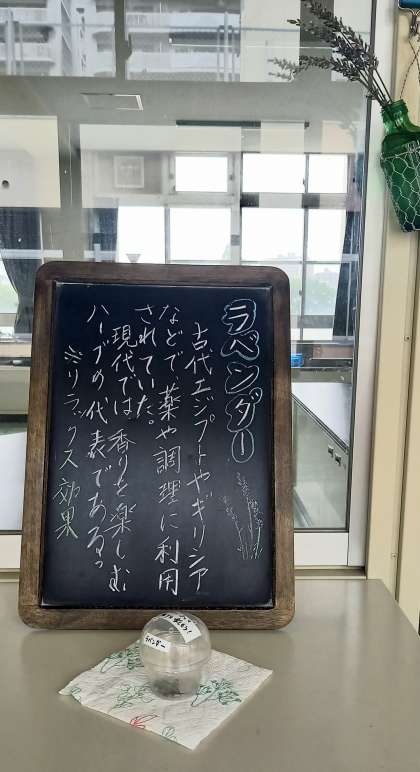 ラベンダー
古代エジプトやギリシア
などで薬や調理に利用
されていた。
現代では香りを楽しむ
ハーブの代表である。
※リラックス効果
ラベンダー